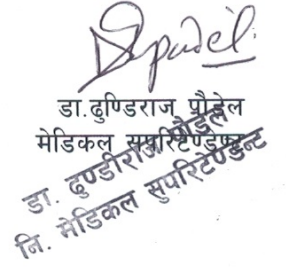 डा.ढुण्डिराज पौडेल
मेडिकल सुपरिटेण्डेण्ट
डा. ढुण्डीराज पौडेल
नि. मेडिकल सुपरिटेण्डेन्ट